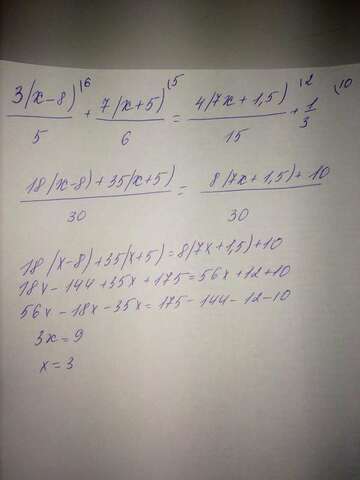 3(x-8)\6 / 5 + 7(x+5)\5 / 6 = 4(7x+1,5)\2 / 15 + 1/3 \10
18(x-8)+35(x+5) / 30 = 8(7x+1,5)+10 / 30
18(x-8)+35(x+5)=8(7x+1,5)+10
18x-144+35x+175=56x+12+10
56x-18x-35x=175-144-12-10
3x=9
x=3